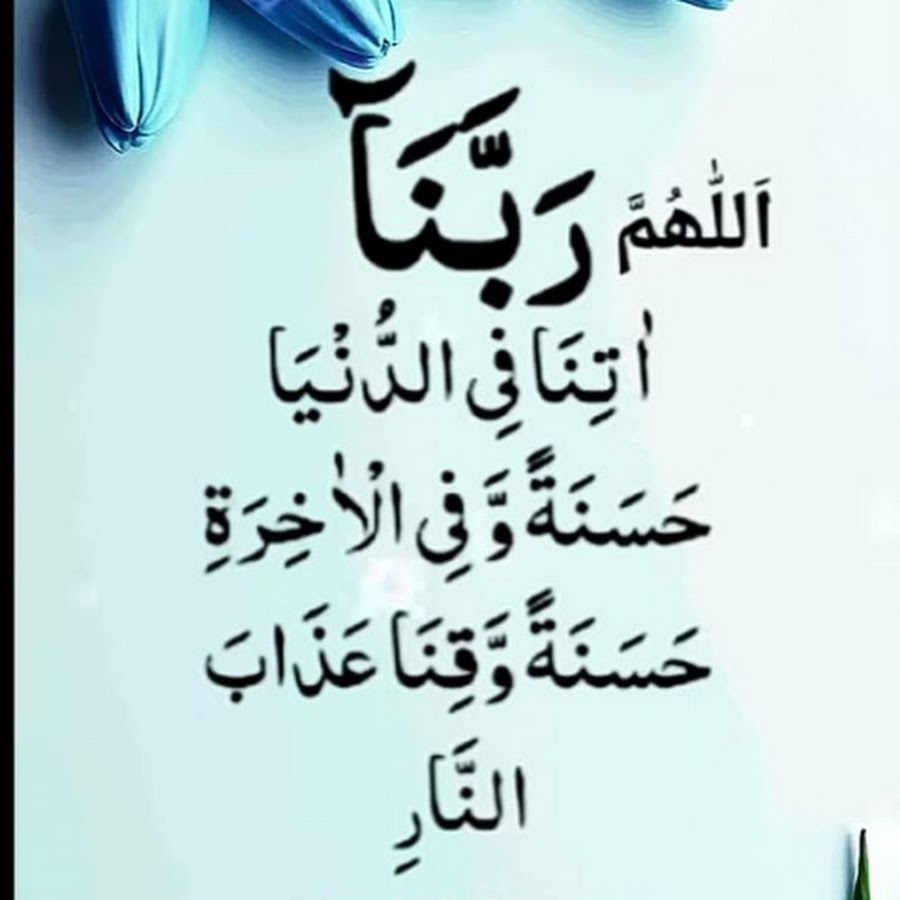 اَللّٰهُمَّ رَبَّنَآ
اٰتِنَا فِى الدُّنْيَا
حَسَنَةً وَّ فِى الْاٰخِرَةِ
حَسَنَةً وَّقِنَا عَذَابَ
النَّارِ